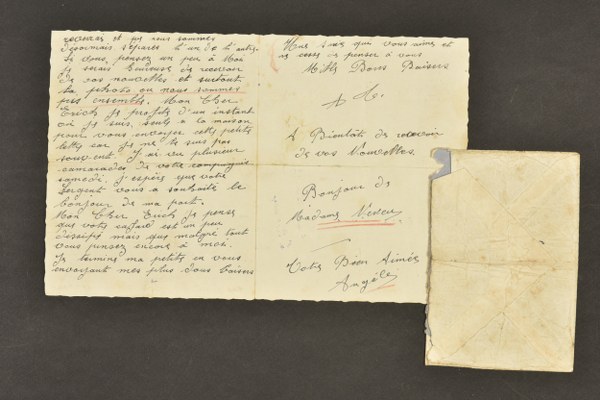 revenir et que nous sommes
désormais séparés l'un de l'autre
si vous, pensez un peu à Mon
je serais heureuse de recevoir
de vos nouvelles et surtout
la petite ou nous sommes
pris ensemble. Mon Cher
Erich je profite d'un instant
où je suis seule à la maison
pour vous envoyer cette petite
lettre car je ne le suis pas
souvent. J'ai vu plusieur
camarades de votre compagnie
samedi. J'espère que votre
Sergent vous a souhaité le
bonjour de ma part.
Mon Cher Erich je pense
que votre cafard est un peu
dissipé mais que malgré tout
vous pensez encore à moi.
Je termine ma petite en vous
envoyant mes plus doux baisers
qui vous aime et
ne cesse de penser à vous
Mille Bons Baisers
A Bientôt de recevoir
de vos Nouvelles.
Bonjour de
Madame
Votre Bien Aimée
Angèle